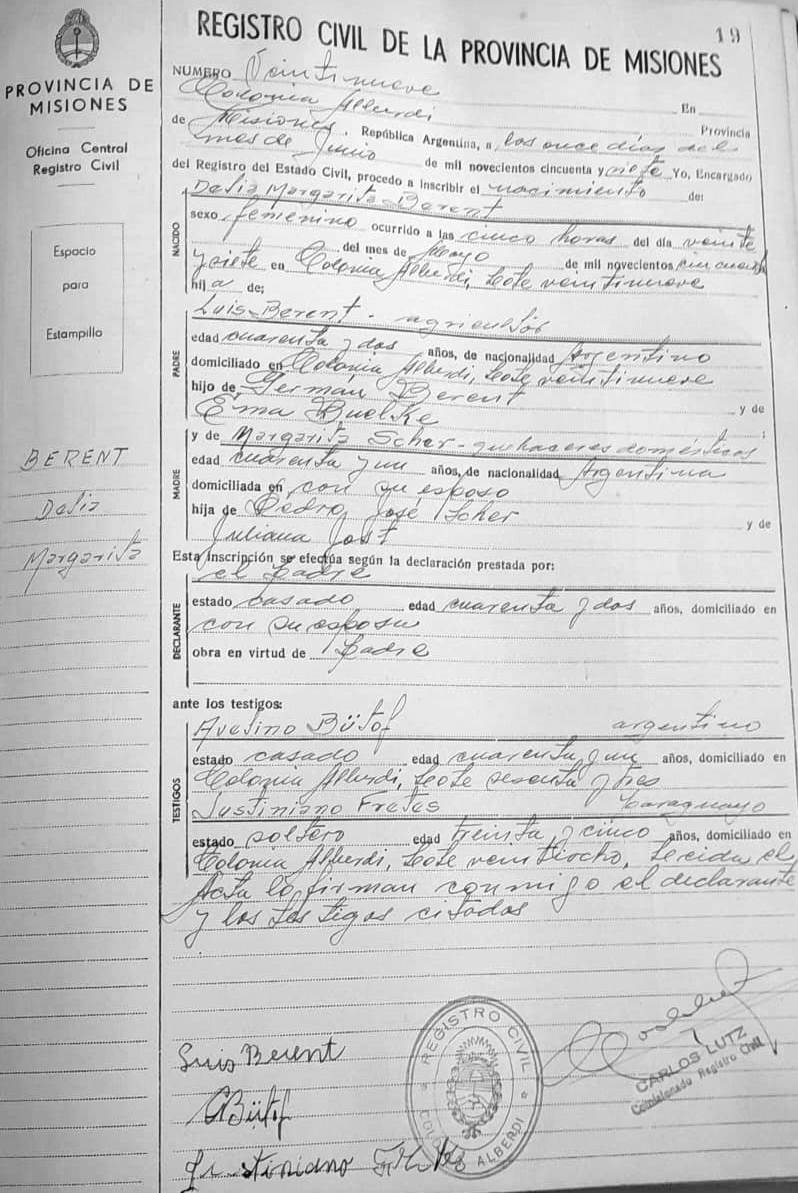 19
REGISTRO CIVIL DE LA PROVINCIA DE MISIONES
PROVINCIA DE
MISIONES
Oficina Central
Registro Civil
Espacio
para
Estampilla
BERENT
Delia
Margarita
NUMERO Veintinueve
Colonia Alberdi En
de Misiones, República Argentina, a los once días del Provincia
mes de Junio de mil novecientos cincuenta y siete Yo, Encargado
del Registro del Estado Civil, procedo a inscribir el nacimiento de:
NACIDO
Delia Margarita Berent
sexo femenino ocurrido a las cinco horas del día veinte
del mes de Mayo de mil novecientos cincuenta
y siete en Colonia Alberdi, Lote veintinueve
hija de:
PADRE
Luis Berent - agricultor
edad cuarenta y dos años, de nacionalidad Argentino
domiciliado en Colonia Alberdi, Lote veintinueve
hijo de German Berent
Ema Buelke y de
MADRE
y de Margarita Scher - quehaceres domésticos;
edad cuarenta y un años, de nacionalidad Argentina
domiciliada en con su esposo
hija de Pedro José Scher
Juliana Jost y de
Esta inscripción se efectúa según la declaración prestada por:
el Padre
DECLARANTE
estado casado edad cuarenta y dos años, domiciliado en
con su esposa
obra en virtud de Padre
ante los testigos:
TESTIGOS
Avelino Bütof argentino
estado casado edad cuarenta y un años, domiciliado en
Colonia Alberdi, Lote sesenta y tres
Justiniano Fretes Paraguayo
estado soltero edad treinta y cinco años, domiciliado en
Colonia Alberdi, Lote veintiocho, Leida el
Acta lo firman conmigo el declarante
y los testigos citados
Luis Berent
ABütof
Justiniano
REGISTRO CIVIL
COLONIA ALBERDI
CARLOS LUTZ
Comisionado Registro Civil